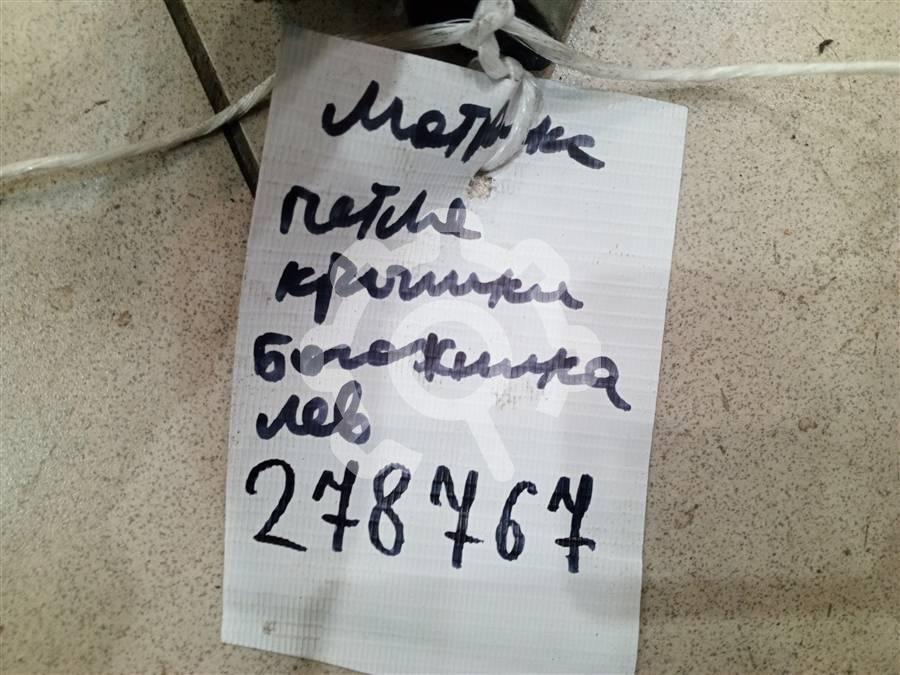 Матрикс
петля
крышки
багажника
лев
278767